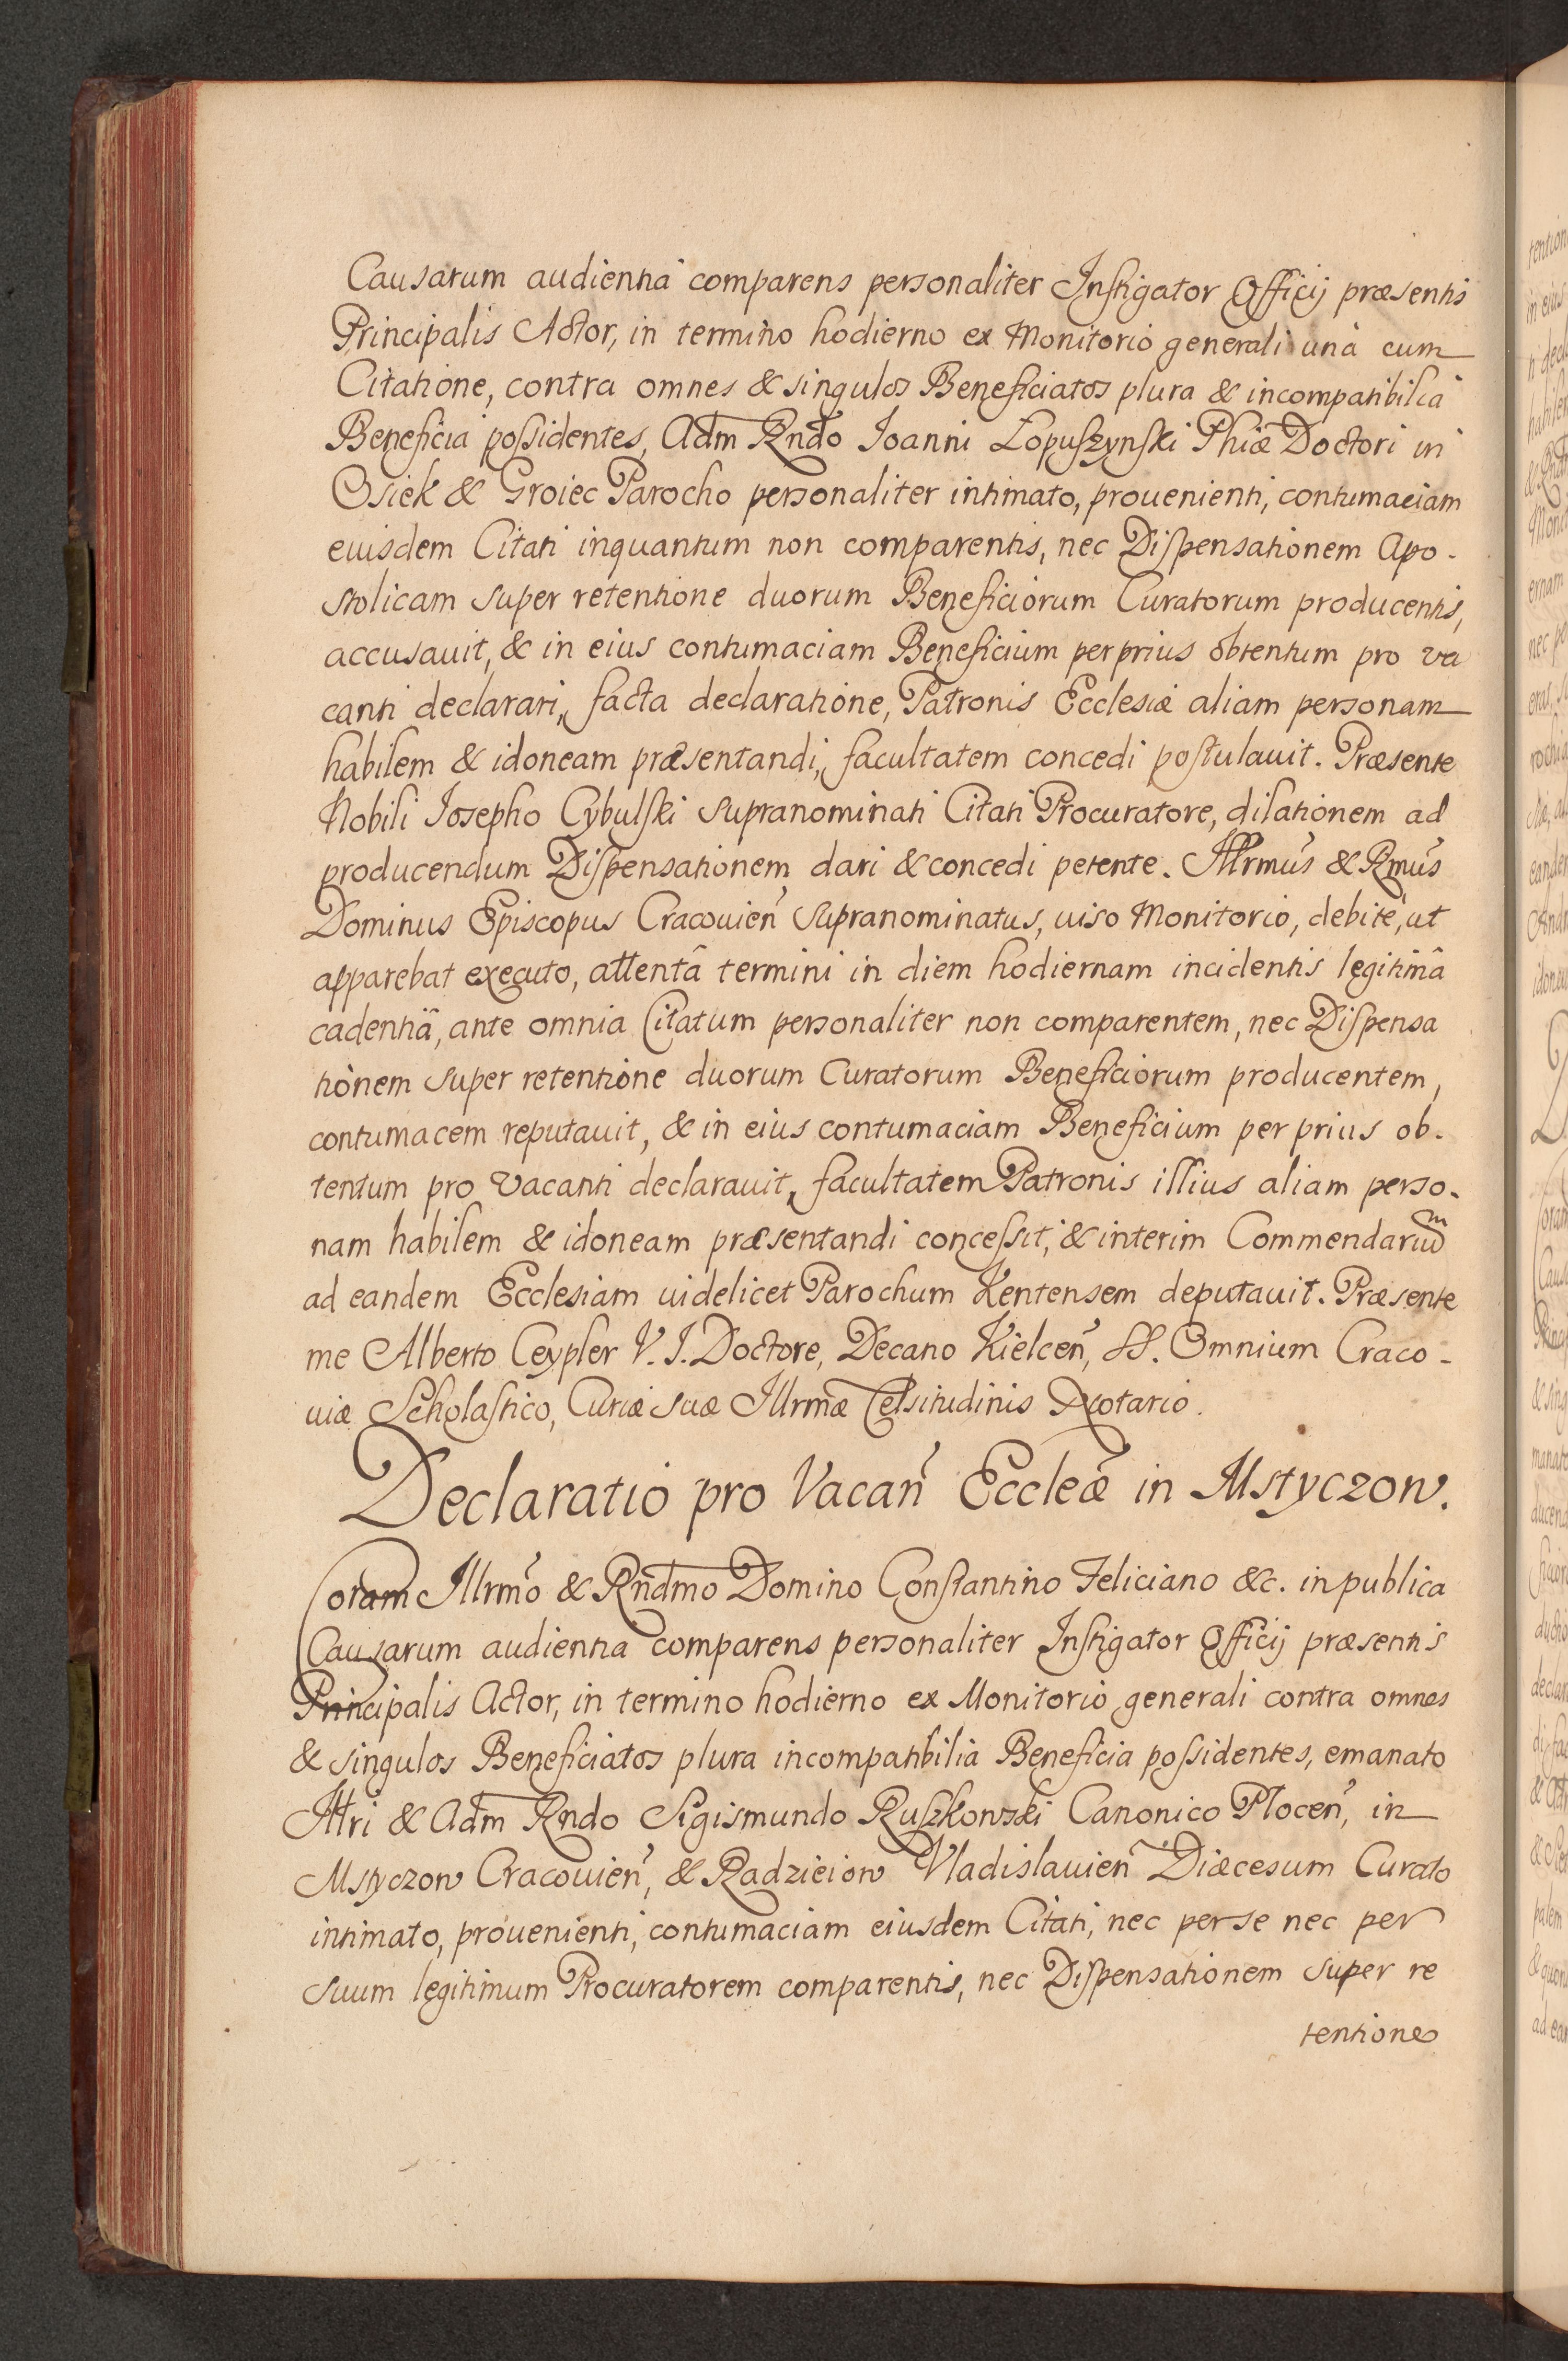 Causarum audientia comparens personaliter Instigator Officij præsentis
Principalis Actor, in termino hodierno ex Monitorio generali unà cum
Citatione, contra omnes & singulos Beneficiatos plura & incompatibilia
Beneficia possidentes, Adm Rndo Ioanni Łopuszynski Phiæ Doctori in
Osiek & Groiec Parocho personaliter intimato, prouenienti, contumaciam
eiusdem Citati inquantum non comparentis, nec Dispensationem Apo-
stolicam super retentione duorum Beneficiorum Curatorum producentis,
accusauit, & in eius contumaciam Beneficium per prius obtentum pro va
canti declarari, facta declaratione, Patronis Ecclesiæ aliam personam
habilem & idoneam præsentandi, facultatem concedi postulauit. Præsente
Nobili Iosepho Cybulski supranominati Citati Procuratore, dilationem ad
producendum Dispensationem dari & concedi petente. Illrmus & Rmus
Dominus Episcopus Cracouien supranominatus, uiso Monitorio, debitè, ut
apparebat executo, attentâ termini in diem hodiernam incidentis legitimâ
cadentiâ, ante omnia Citatum personaliter non comparentem, nec Dispensa
tionem super retentione duorum Curatorum Beneficiorum producentem,
contumacem reputauit, & in eius contumaciam Beneficium per prius ob-
tentum pro vacanti declarauit, facultatem Patronis illius aliam perso-
nam habilem & idoneam præsentandi concessit, & interim Commendarium
ad eandem Ecclesiam uidelicet Parochum Kentensem deputauit. Præsente
me Alberto Ceypler V. I. Doctore, Decano Kielcen, SS. Omnium Craco-
uiæ Scholastico, Curiæ suæ Illrmæ Celsitudinis Notario.
Declaratio pro Vacan Eccleæ in Mstyczow.
Coram Illrmo & Rndmo Domino Constantino Feliciano &c. in publica
Causarum audientia comparens personaliter Instigator Officij præsentis
Principalis Actor, in termino hodierno ex Monitorio generali contra omnes
& singulos Beneficiatos plura incompatibilia Beneficia possidentes, emanato
Illri & Adm Rndo Sigismundo Ruszkowski Canonico Plocen, in
Mstyczow Cracouien, & Radzieiow Vladislauien Diæcesum Curato
intimato, prouenienti, contumaciam eiusdem Citati, nec per se nec per
suum legitimum Procuratorem comparentis, nec Dispensationem super re
tentione